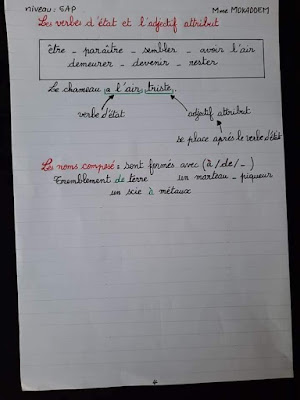 niveau : 5AP Mme MOKADDEM
Les verbes d'état et l'adjectif attribut
être _ paraître _ sembler _ avoir l'air
demeurer _ devenir _ rester
Le chameau a l'air triste.
verbe d'état adjectif attribut
se place après le verbe d'état
Les noms composés : sont formés avec (à / de / _ )
Tremblement de terre un marteau _ piqueur
un scie à métaux